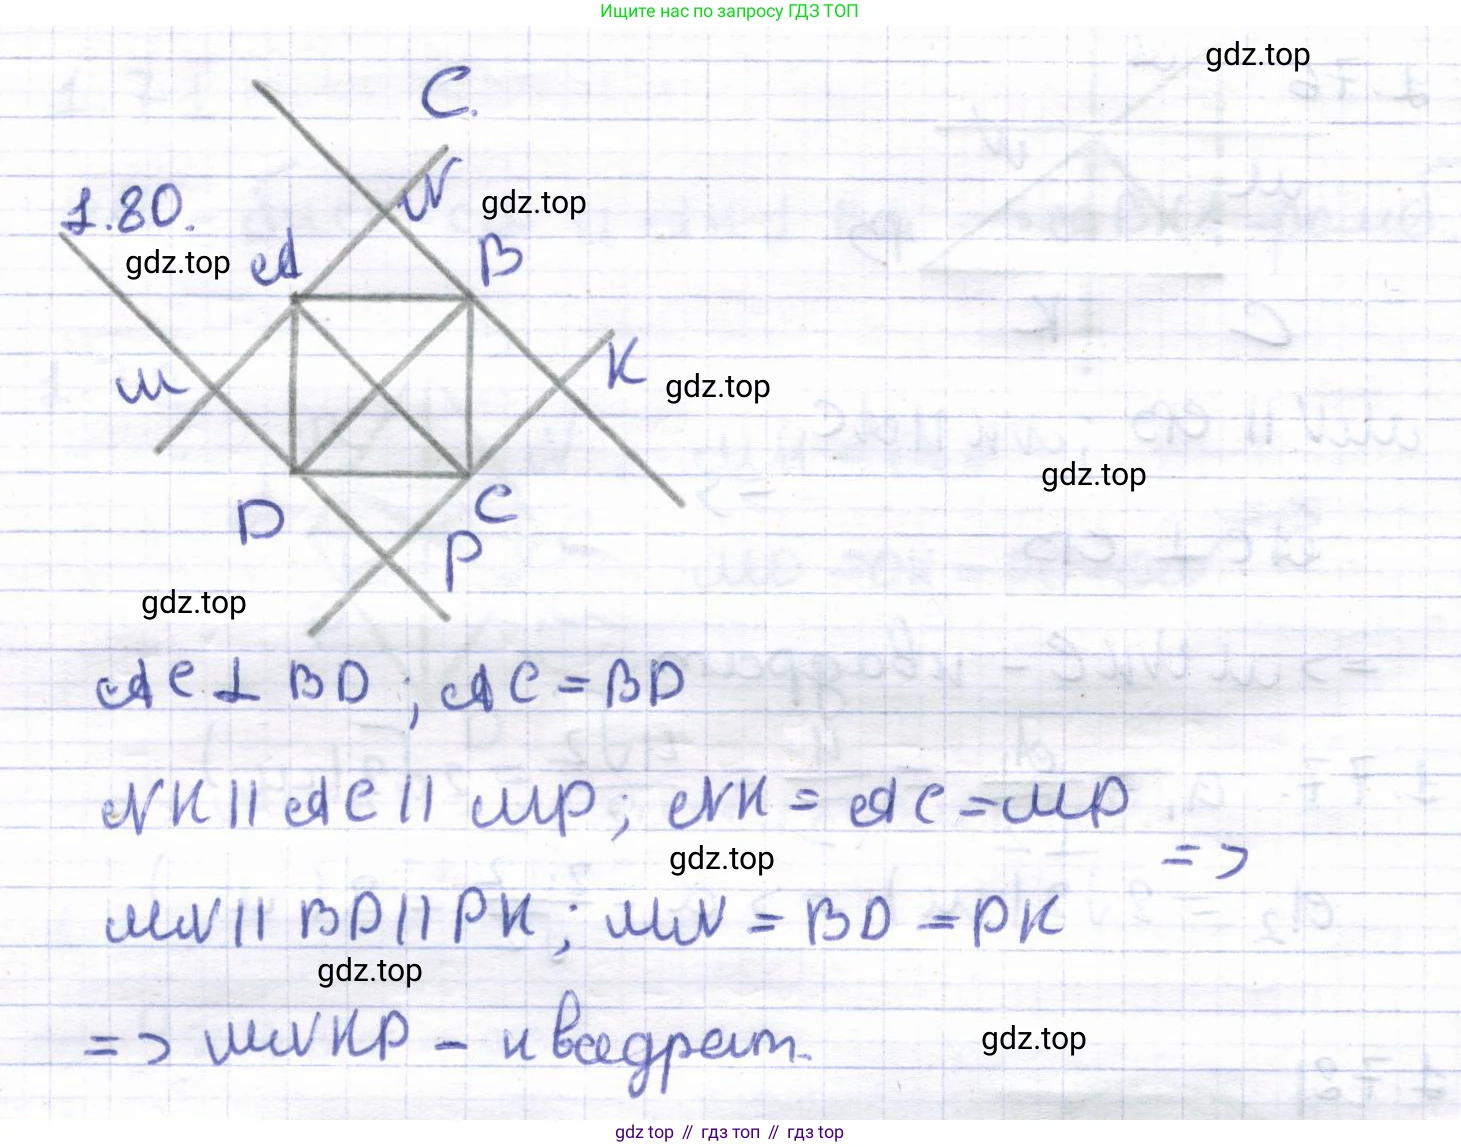 Ищите нас по запросу ГДЗ ТОП
gdz.top
C.
1.80.
N
gdz.top
gdz.top
A
B
M
K
gdz.top
gdz.top
D
C
P
gdz.top
AC ⊥ BD ; AC = BD
NK || AC || MP ; NK = AC = MP
=>
gdz.top
MN || BD || PK ; MN = BD = PK
gdz.top
=> MNKP – квадрат.
gdz.top
gdz top // гдз топ // гдз top